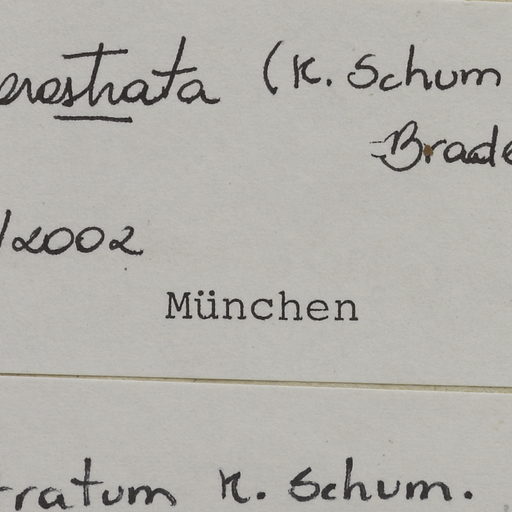 erostrata (K. Schum
Brade
/2002
München
rratum K. Schum.